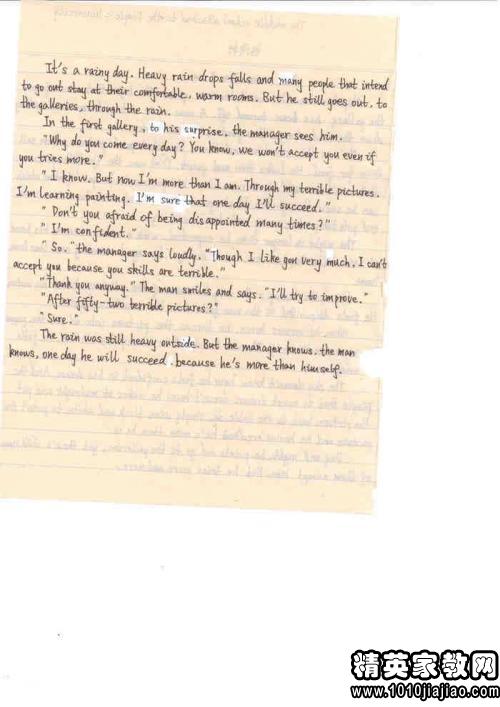 It's a rainy day. Heavy rain drops falls and many people that intend
to go out stay at their comfortable, warm rooms. But he still goes out, to
the galleries, through the rain.
In the first gallery, to his surprise, the manager sees him.
"Why do you come every day? You know, we won't accept you even if
you tries more."
"I know. But now I'm more than I am. Through my terrible pictures,
I'm learning painting. I'm sure that one day I'll succeed."
"Don't you afraid of being disappointed many times?"
"I'm confident."
"So." the manager says loudly. "Though I like you very much, I can't
accept you because you skills are terrible."
"Thank you anyway." The man smiles and says. "I'll try to improve."
"After fifty-two terrible pictures?"
"Sure."
The rain was still heavy outside. But the manager knows, the man
knows, one day he will succeed, because he's more than himself.
精英家教网
www.1010jiajiao.com